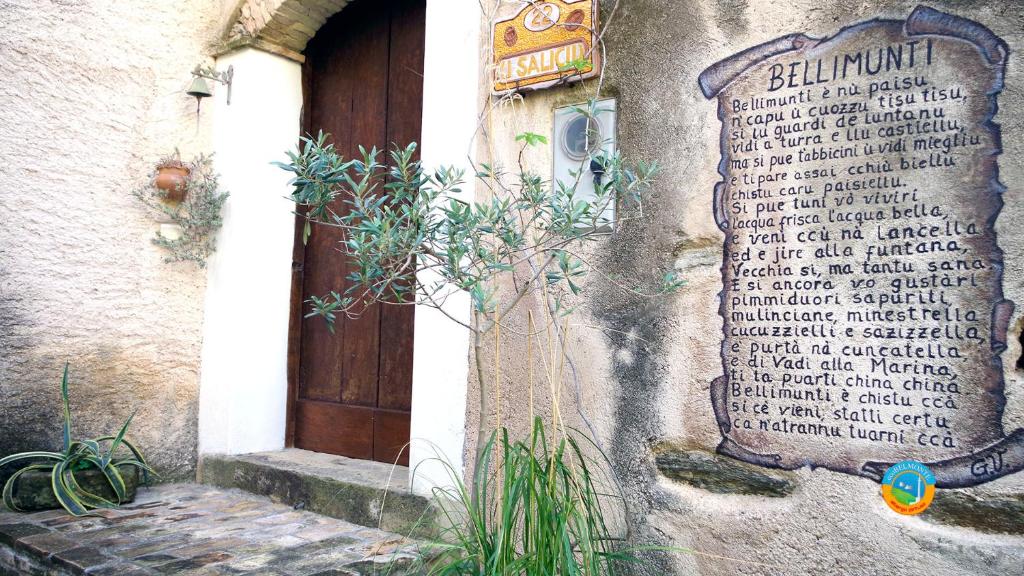 22
I SALICIU
BELLIMUNTI
Bellimunti è nù paisu
n'capu ù cuozzu tisu tisu,
si lu guardi de luntanu
vidi a turra e llu castiellu,
ma si pue t'abbicini ù vidi miegliu
e ti pare assai cchiù biellu
chistu caru paisiellu.
Si pue tuni vò viviri
l'acqua frisca l'acqua bella,
e veni ccù nà lancella
ed e jire alla funtana,
Vecchia si, ma tantu sana
E si ancora vo gustàri
pimmiduori sapuriti,
mulinciane, minestrella
cucuzzielli e sazizzella,
e purtà nà cuncatella
e di Vadi alla Marina,
ti la puarti china china
Bellimunti, è chistu ccà
si cè vieni, statti certu
ca n'atrannu tuarni ccà
G.V